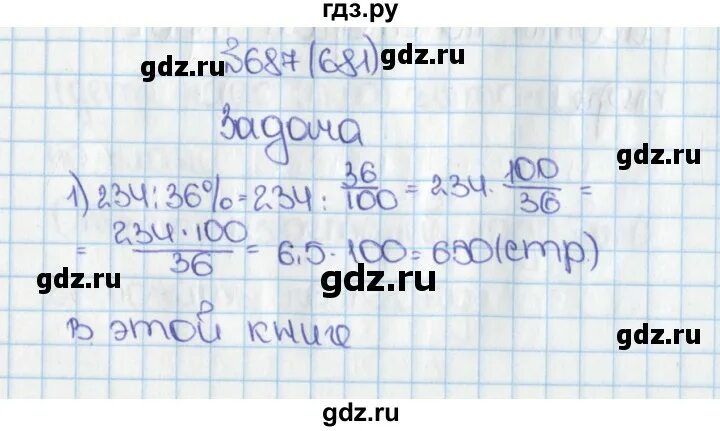 гдз.ру
gdz.ru
№687(681)
gdz.ru
gdz.ru
Задача
gdz.ru
1) 234:36%=234:36/100=234·100/36=
=234·100/36=6,5·100=650(стр.)
gdz.ru
gdz.ru
в этой книге
gdz.ru
gdz.ru